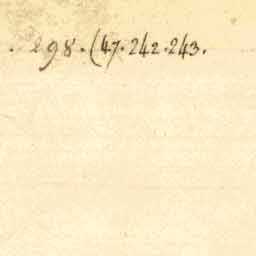 . 298. (47. 242. 243.